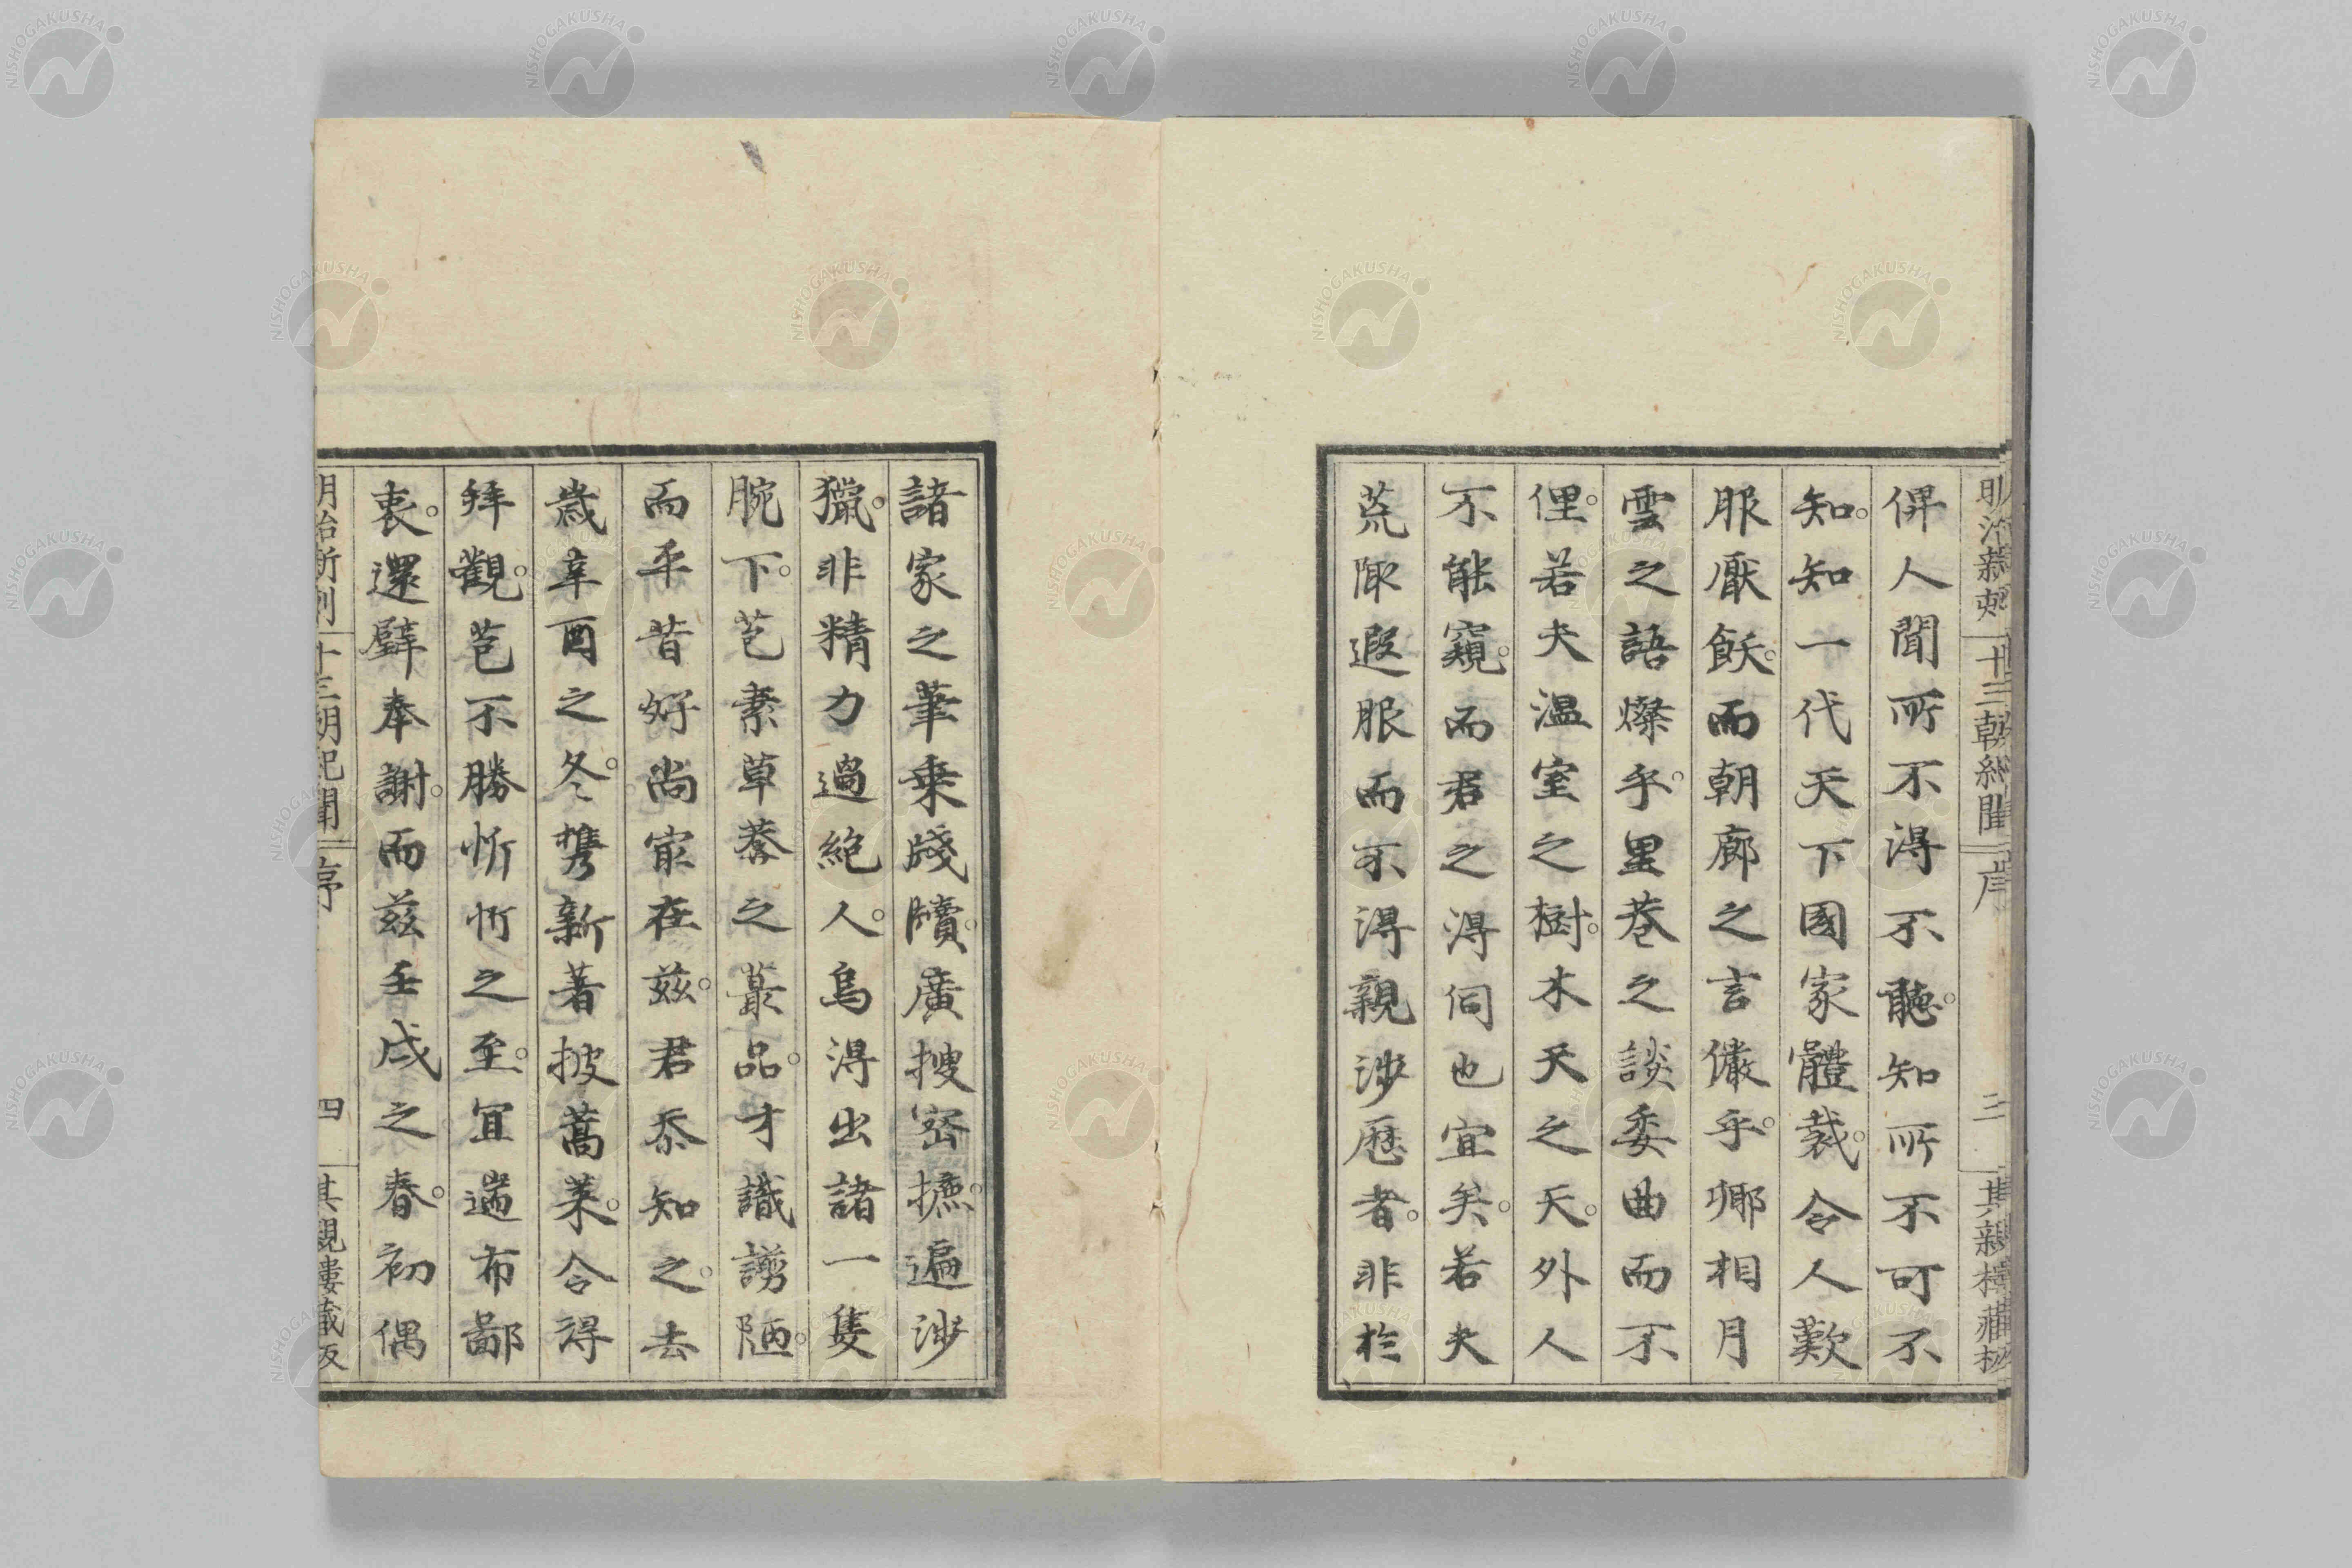 明治新刻 十三朝紀聞 序 三 其親樓藏板
俾人聞所不得不聽。知所不可不
知。知一代天下國家體裁。令人歎
服厭飫。而朝廊之言儼乎。卿相月
雲之語燦乎。里巷之談委曲而不
俚。若夫温室之樹。木天之天。外人
不能窺。而君之得伺也宜矣。若夫
荒陬遐服而不得親涉歷者。非於
諸家之筆乗牋牘。廣搜密摭。遍涉
獵。非精力過絶人。烏得出諸一隻
腕下。芑素草莽之叢品。才識謭陋。
而平昔好尚寔在兹。君忝知之。去
歲辛酉之冬。携新著披蒿萊。令得
拜觀。芑不勝忻忻之至。宜遄布鄙
衷。還璧奉謝。而兹壬戌之春。初偶
明治新刻 十三朝紀聞 序 四 其親樓藏板